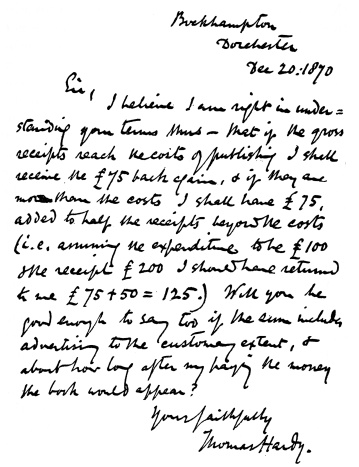 Bockhampton
Dorchester
Dec 20. 1870
Sir,
I believe I am right in under=
standing your terms thus — that if the gross
receipts reach the costs of publishing I shall
receive the £75 back again, & if they are
more than the costs I shall have £75,
added to half the receipts beyond the costs
(i.e. assuming the expenditure to be £100
& the receipts £200 I should have returned
to me £75 + 50 = 125.) Will you be
good enough to say too if the sum includes
advertising to the customary extent, &
about how long after my paying the money
the book would appear?
Yours faithfully
Thomas Hardy.